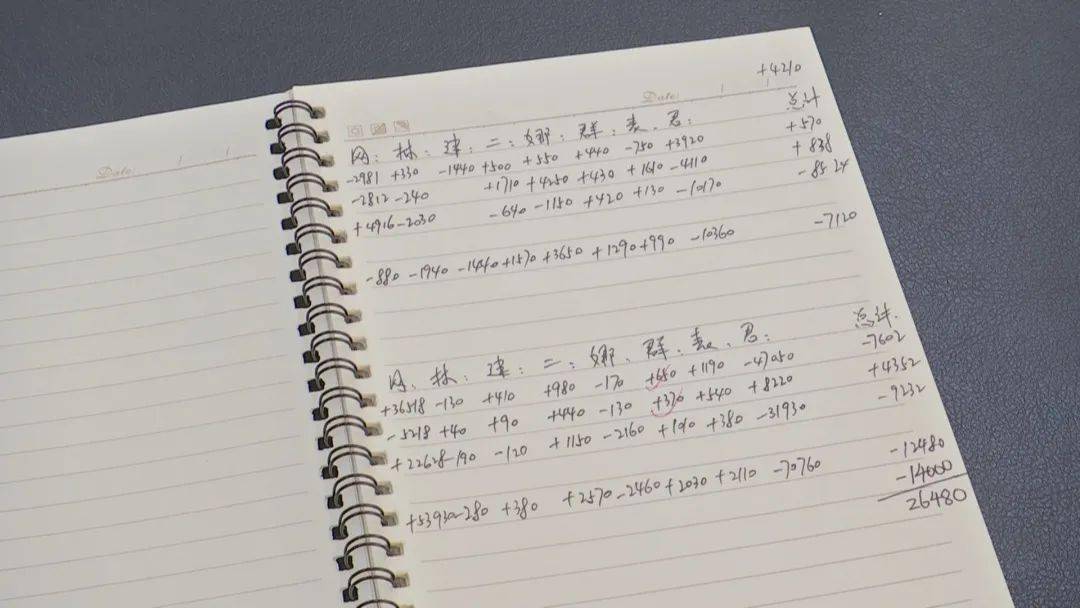 Date:
Date:
+4210
网: 林: 建: 二: 娜: 群: 表. 君: 总计
-2981 +330 -1440 +500 +550 +440 -750 +3920 +570
-2812 -240 +1710 +4250 +430 +1610 -4110 +838
+4916 -2030 -640 -1150 +420 +130 -10170 -8524
-880 -1940 -1440 +1570 +3650 +1290 +990 -10360 -7120
网. 林. 建: 二: 娜. 群. 表. 君: 总计.
+36518 -130 +410 +980 -170 +650 +1190 -47050 -7602
-5218 +40 +90 +440 -130 +370 +540 +8220 +4352
+22628 -190 -120 +1150 -2160 +1010 +380 -31930 -9232
+53930 -280 +380 +2570 -2460 +2030 +2110 -70760 -12480
-14000
26480